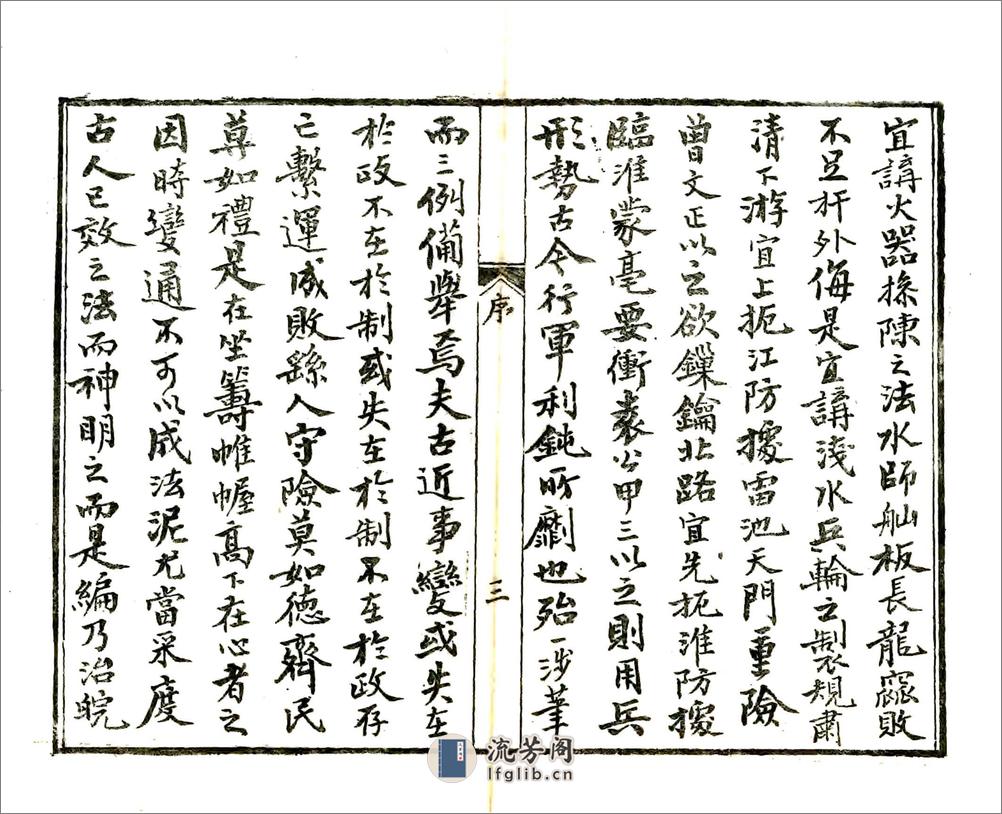 宜講火器操陳之法水師舢板長龍窳敗
不足扞外侮是宜講淺水兵輪之制規肅
清下游宜上扼江防據雷池天門重險
曾文正以之欲鏁鑰北路宜先扼淮防據
臨淮蒙亳要衝袁公甲三以之則用兵
形勢古今行軍利鈍所劘也殆一涉筆
而三例備舉焉夫古近事變或失在
於政不在於制或失在於制不在於政存
亡繫運成敗繇人守險莫如德齊民
尊如禮是在坐籌帷幄高下在心者之
因時變通不可以成法泥尤當采度
古人已效之法而神明之而是編乃治皖
序
三
流芳阁
lfglib.cn